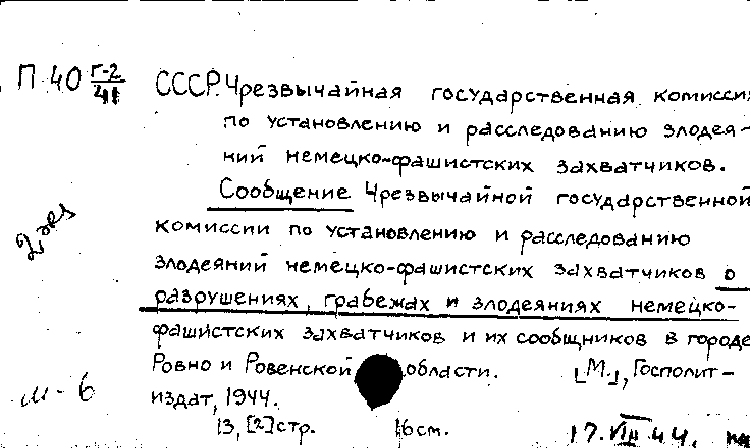 П 40 Г-2/41 СССР. Чрезвычайная государственная комиссия
по установлению и расследованию злодея-
ний немецко-фашистских захватчиков.
Сообщение Чрезвычайной государственной
комиссии по установлению и расследованию
злодеяний немецко-фашистских захватчиков о
разрушениях, грабежах и злодеяниях немецко-
фашистских захватчиков и их сообщников в городе
Ровно и Ровенской области. [М.], Госполит-
издат, 1944.
13, [2] стр. 16 см.
м - 6
17.VIII 44.